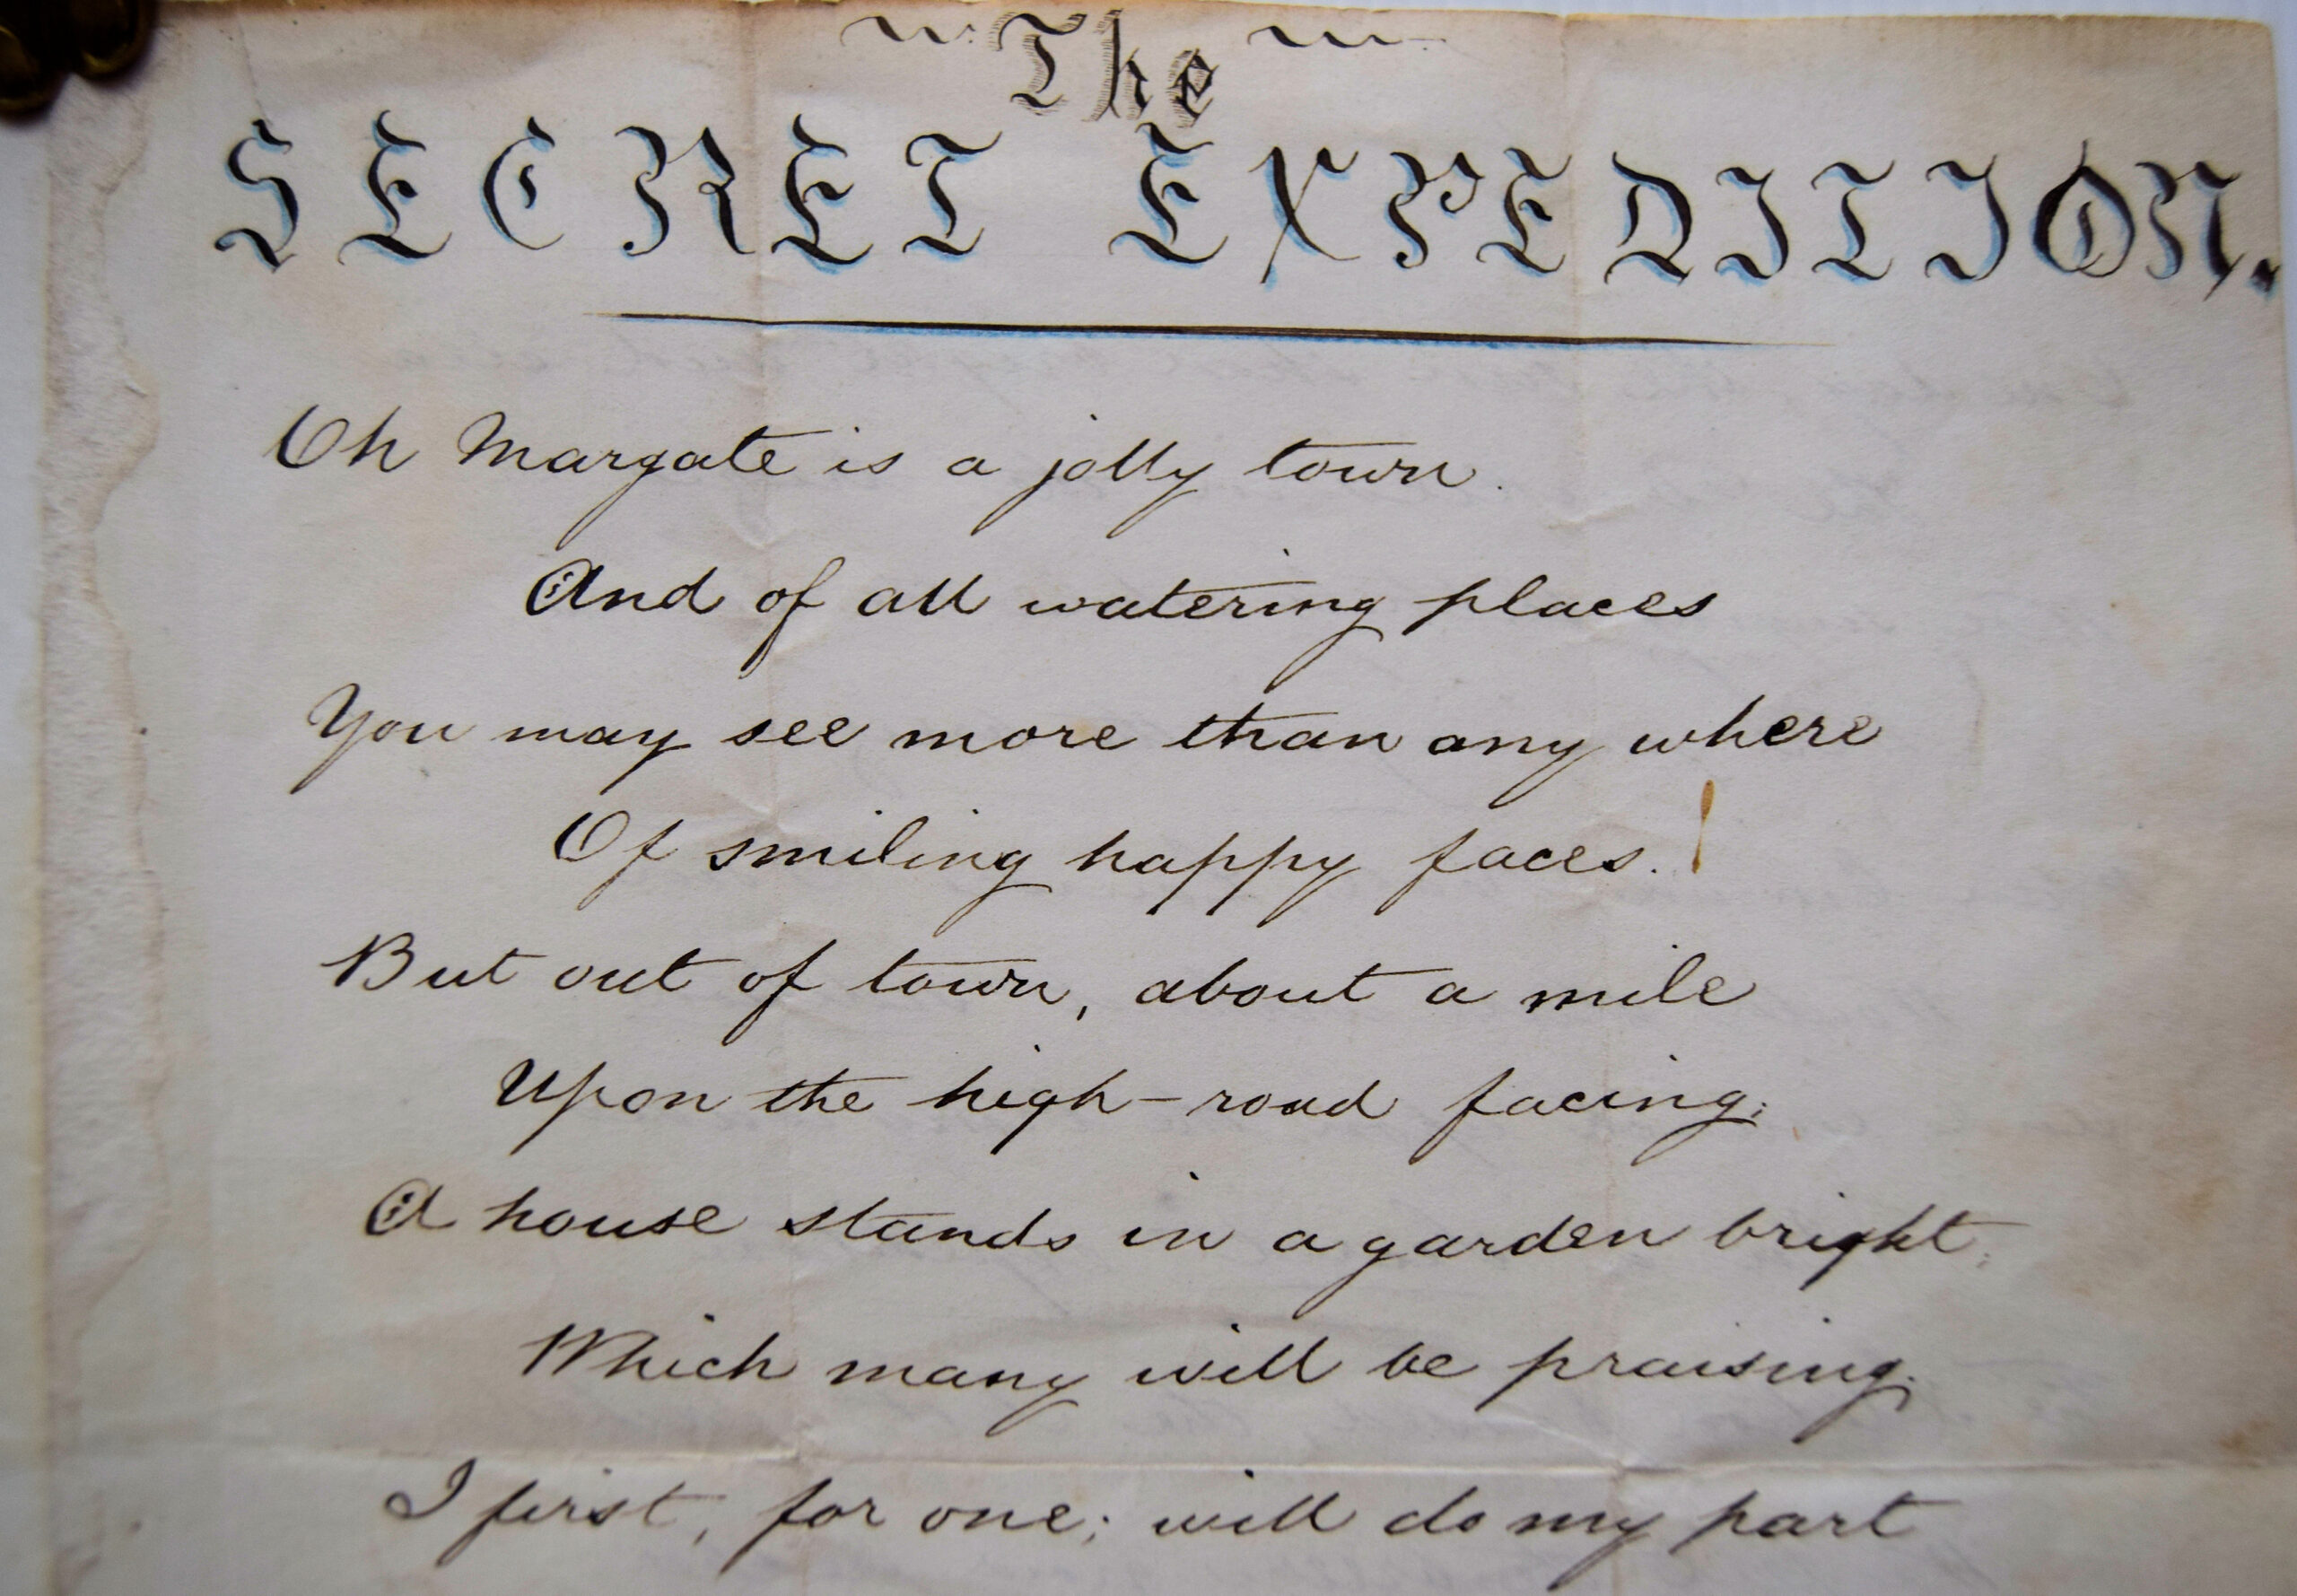 The
SECRET EXPEDITION.
Oh Margate is a jolly town.
And of all watering places
You may see more than any where
Of smiling happy faces.!
But out of town, about a mile
Upon the high-road facing;
A house stands in a garden bright;
Which many will be praising.
I first, for one; will do my part